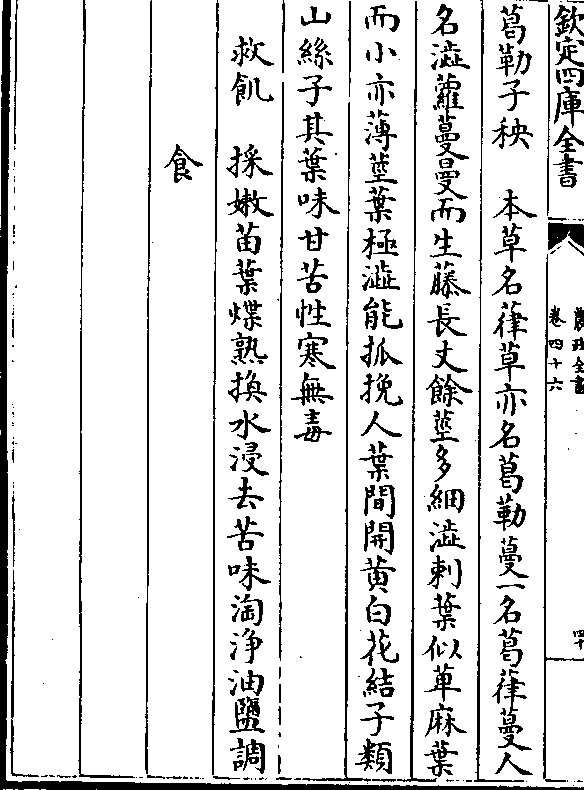 欽定四庫全書
農政全書
卷四十六
四十
葛勒子秧　本草名葎草亦名葛勒蔓一名葛葎蔓人
名澁蘿蔓蔓而生藤長丈餘莖多細澁刺葉似萆麻葉
而小亦薄莖葉極澁能抓挽人葉間開黄白花結子類
山絲子其葉味甘苦性寒無毒
救飢　採嫩苗葉煠熟換水浸去苦味淘淨油鹽調
食